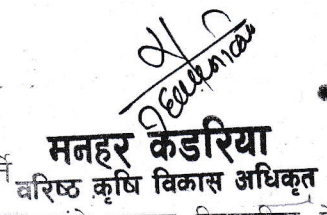 मनहर केडरिया
वरिष्ठ कृषि विकास अधिकृत